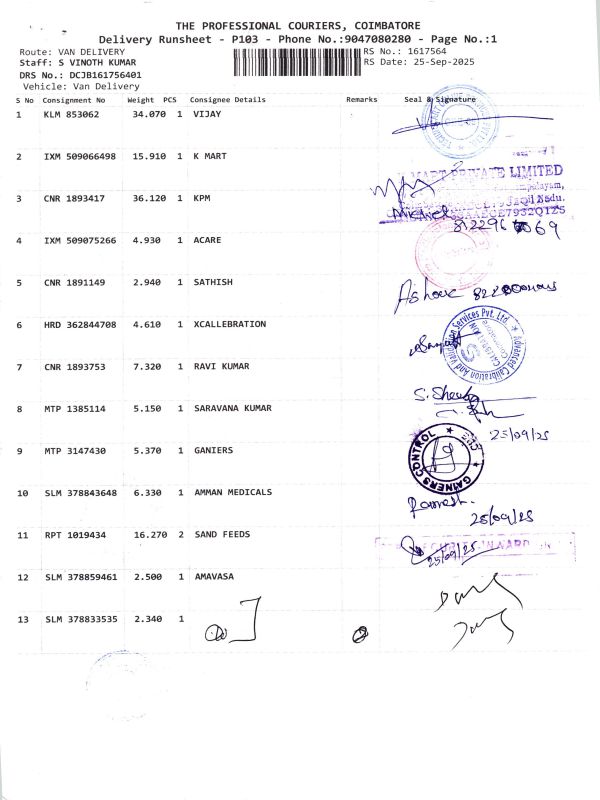 THE PROFESSIONAL COURIERS, COIMBATORE
Delivery Runsheet - P103 - Phone No.:9047080280 - Page No.:1
Route: VAN DELIVERY
Staff: S VINOTH KUMAR
DRS No.: DCJB161756401
Vehicle: Van Delivery
RS No.: 1617564
RS Date: 25-Sep-2025
S No Consignment No Weight PCS Consignee Details Remarks Seal & Signature
1 KLM 853062 34.070 1 VIJAY
2 IXM 509066498 15.910 1 K MART
MART PRIVATE LIMITED
3 CNR 1893417 36.120 1 KPM
4 IXM 509075266 4.930 1 ACARE
5 CNR 1891149 2.940 1 SATHISH
Ashok
6 HRD 362844708 4.610 1 XCALLEBRATION
Advanced Calibration And Validation Services Pvt. Ltd.
7 CNR 1893753 7.320 1 RAVI KUMAR
8 MTP 1385114 5.150 1 SARAVANA KUMAR
25/09/25
9 MTP 3147430 5.370 1 GANIERS
GAINERS CONTROL
10 SLM 378843648 6.330 1 AMMAN MEDICALS
Ramesh
25/09/25
11 RPT 1019434 16.270 2 SAND FEEDS
25/09/25
12 SLM 378859461 2.500 1 AMAVASA
13 SLM 378833535 2.340 1